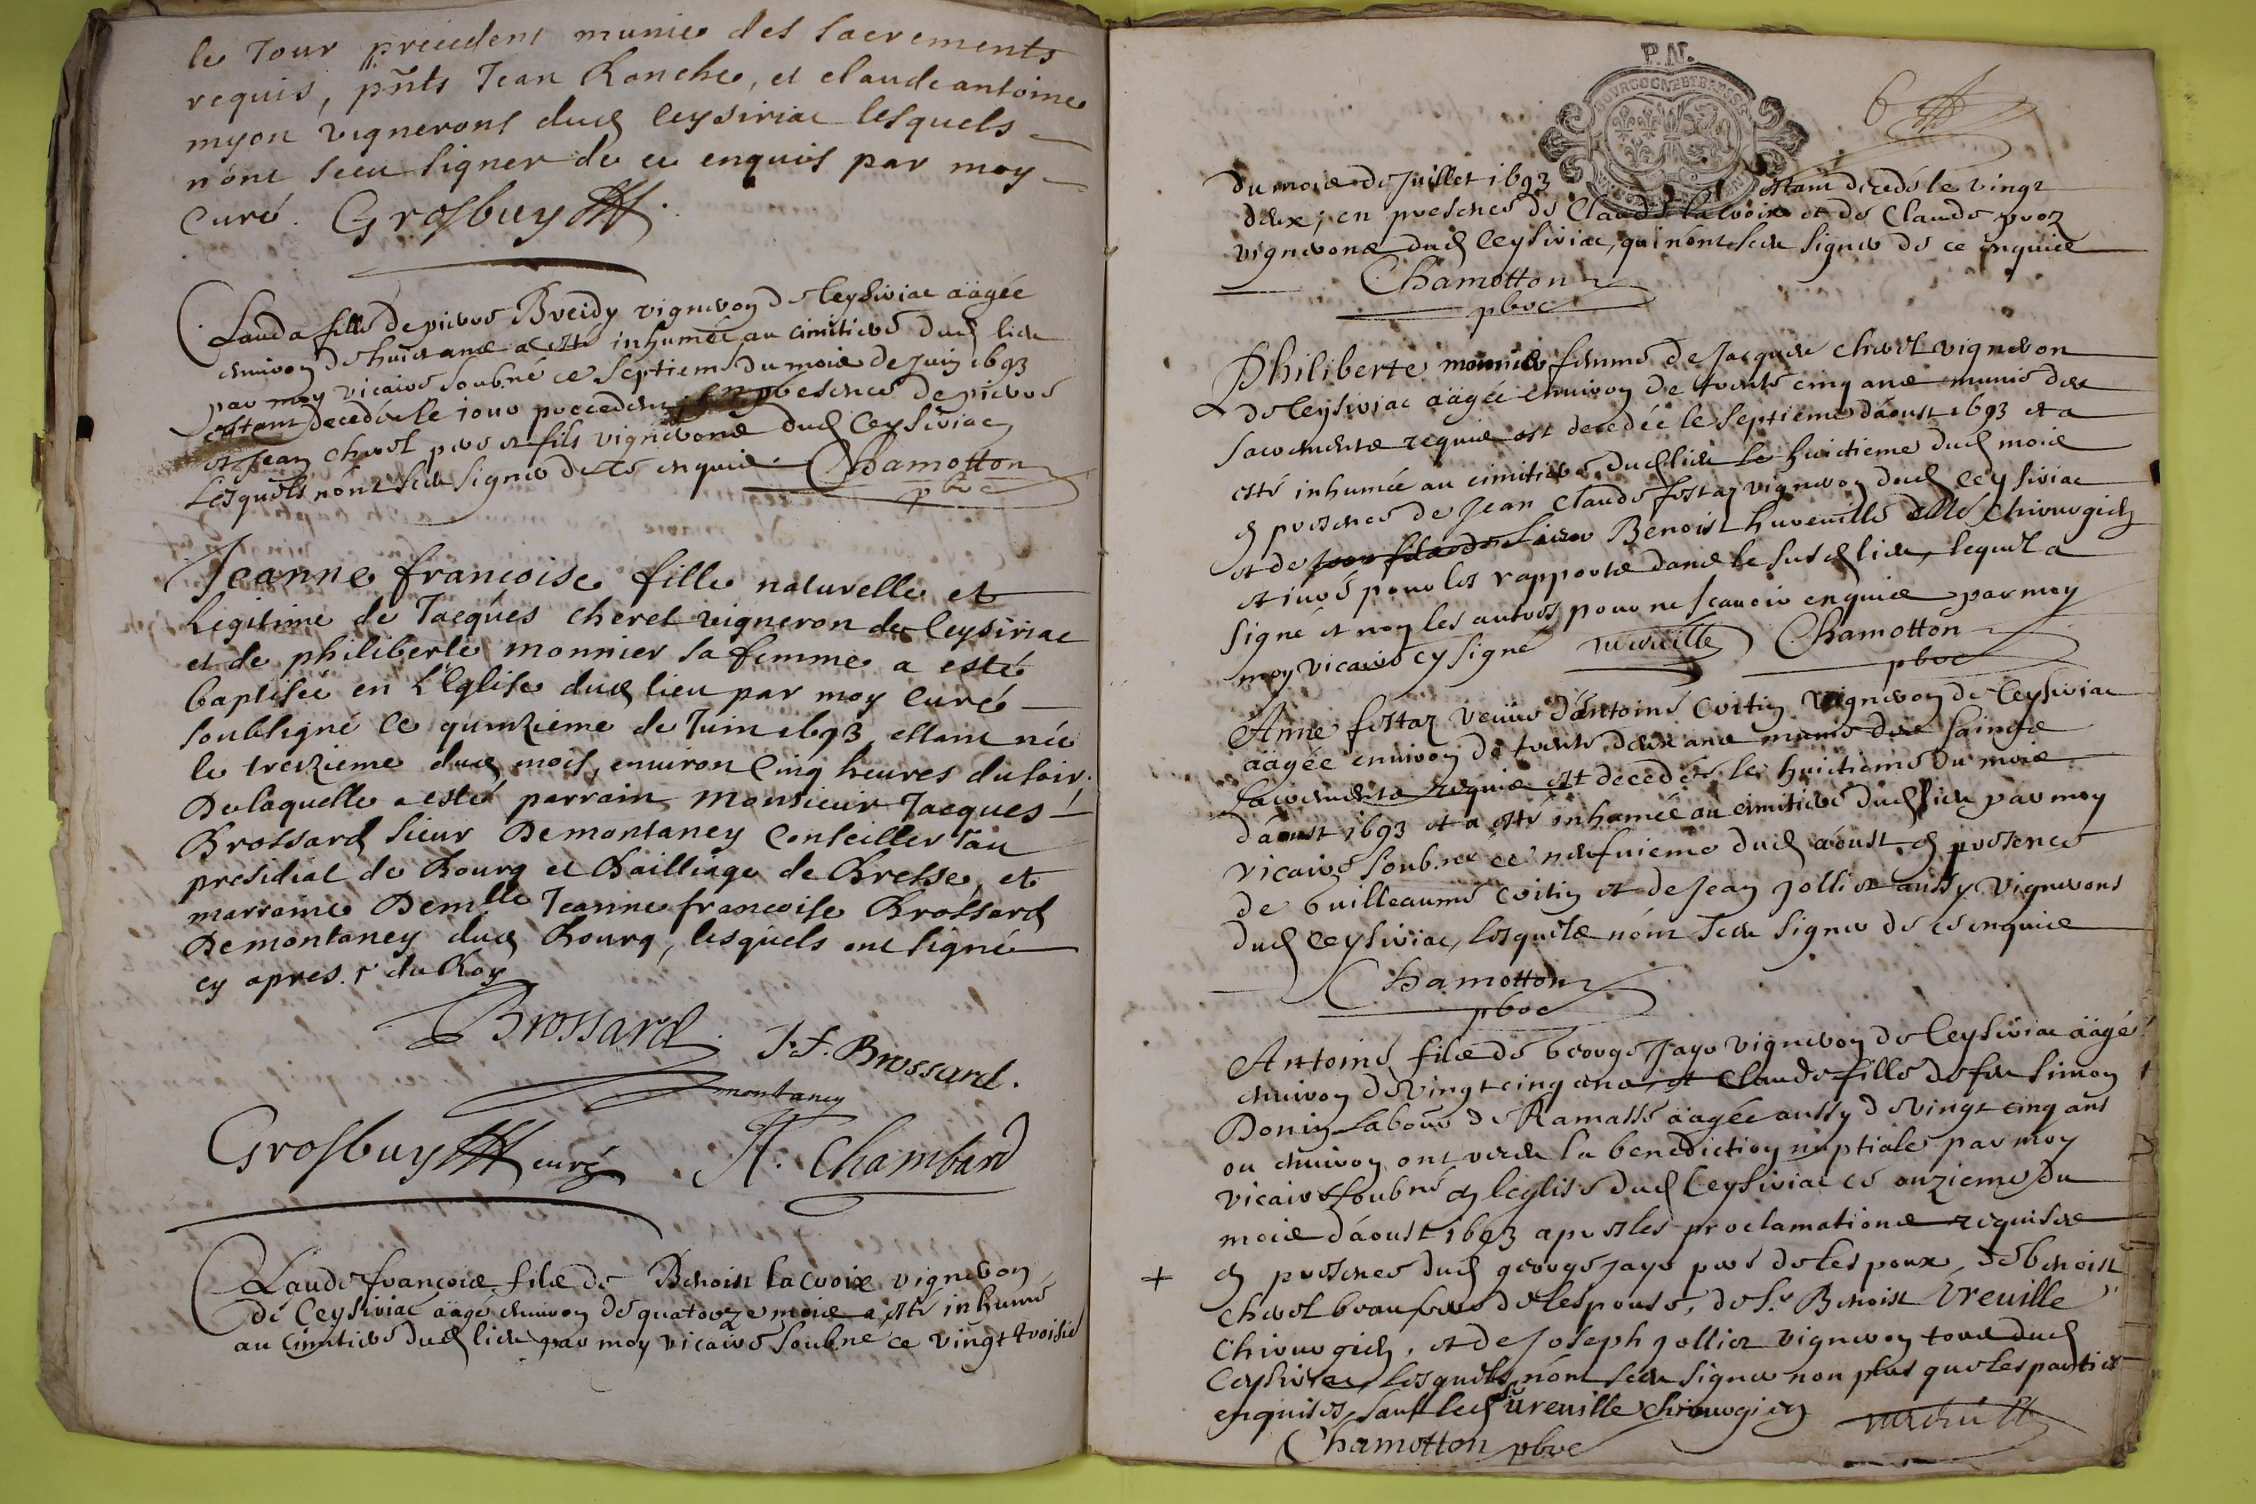 le Jour precedent munie des sacrements
requis, pñts Jean Ronche, et claude antoine
myon vignerons dud Ceysiriac lesquels
n'ont sceu signer de ce enquis par moy
Curé. Grosbuy
Clauda fille de pierre Breidy vigneron de Ceysiriac aagée
environ de huict ans a esté inhumée au cimitiere dud lieu
par moy vicaire soubné ce septieme du mois de Juin 1693
estant decedée le jour precedent, en presence de pierre
et Jean cherel pere et fils vignerons dud Ceysiriac
Lesquels n'ont sceu signer de ce enquis. Chamotton
pbre
Jeanne françoise fille naturelle et
Legitime de Jacques cherel vigneron de Ceysiriac
et de philiberte monnier sa femme a esté
baptisée en L'Eglise dud lieu par moy curé
soubsigné ce quinzieme de Juin 1693, estant née
le treizieme dud mois, environ Cinq heures du soir.
De laquelle a esté parrain Monsieur Jacques
Brossard sieur Demontaney Conseiller au
presidial de Bourg et Bailliage de Bresse, et
marraine Demlle Jeanne françoise Brossard
Demontaney dud Bourg, lesquels ont signé
cy apres. r du Roy
Brossard. J. f. Brossard.
montaney
Grosbuy curé A. Chambard
Claude françois fils de Benoist Lacroix vigneron
de Ceysiriac aagé environ de quatorze mois a esté inhumé
au Cimitiere dud lieu par moy vicaire soubné ce vingt troisie
P. N.
BOVRGOGNE ET BRESSE
6
du mois de Juillet 1693 estant decedé le vingt
deux, en presence de Claude Lacroix et de Claude proz
vignerons dud Ceysiriac, qui n'ont sceu signer de ce enquis
Chamotton
pbre
Philiberte monnier femme de Jacques cherel vigneron
de Ceysiriac aagée environ de trente cinq ans munie des
sacrements requis est decedée le septieme d'aoust 1693 et a
esté inhumée au cimitiere dud lieu le huictieme dud mois
en presence de Jean Claude fostaz vigneron dud Ceysiriac
et de sieur Benoist hureuille Chirurgien
et juré pour les rapports dans le susd lieu, lequel a
signé et non les autres pour ne sçavoir enquis par moy
moy vicaire cy signé vureuille Chamotton
pbre
Anne fostaz veuve d'antoine Coitin vigneron de Ceysiriac
aagée environ de trente deux ans munie des saincts
sacrements requis est decedée le huictieme du mois
d'aoust 1693 et a esté inhumée au cimitiere dud lieu par moy
vicaire soub.né ce neufuieme dud aoust, en presence
de Guilleaume Coitin et de Jean Jollier aussy vignerons
dud Ceysiriac, lesquels n'ont sceu signer de ce enquis
Chamotton
pbre
Antoine fils de George Jayr vigneron de Ceysiriac aagé
environ de vingt cinq ans, et Claude fille de feu Simon
Donin labour de Ramasse aagée aussy de vingt cinq ans
ou environ ont receu la benediction nuptiale par moy
vicaire soubné en l'eglise dud Ceysiriac ce onzieme du
mois d'aoust 1693 apres les proclamations requises
+ en presence dud george jayr pere de lespoux, de benoist
cherel beaufrere de lespouse, de Sr Benoist Vreuille
Chirurgien, et de Joseph jollier vigneron tous dud
Ceysiriac, lesquels n'ont sceu signer non plus que les parties
enquises, sauf led Sr ureuille chirurgien vureuille
Chamotton pbre